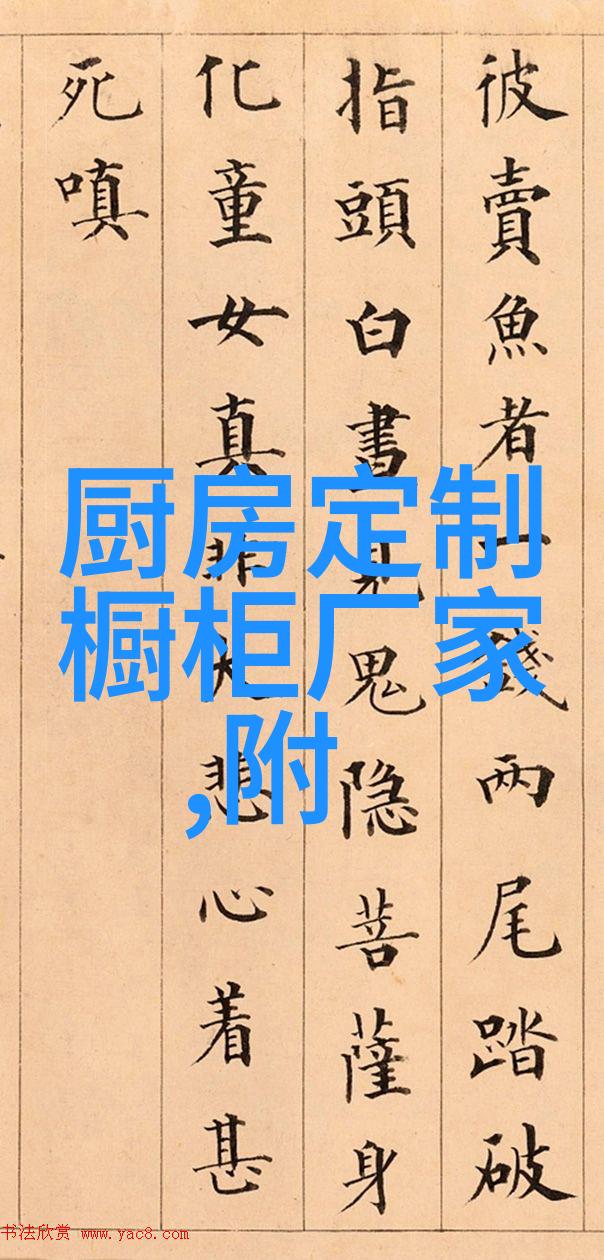 彼賣魚者一錢兩尾踏破
指頭白書見鬼隐菩薩身
化童女真非大悲心着甚
死嗔
厨房定制
橱柜厂家
,附
书法欣赏 www.yac8.com